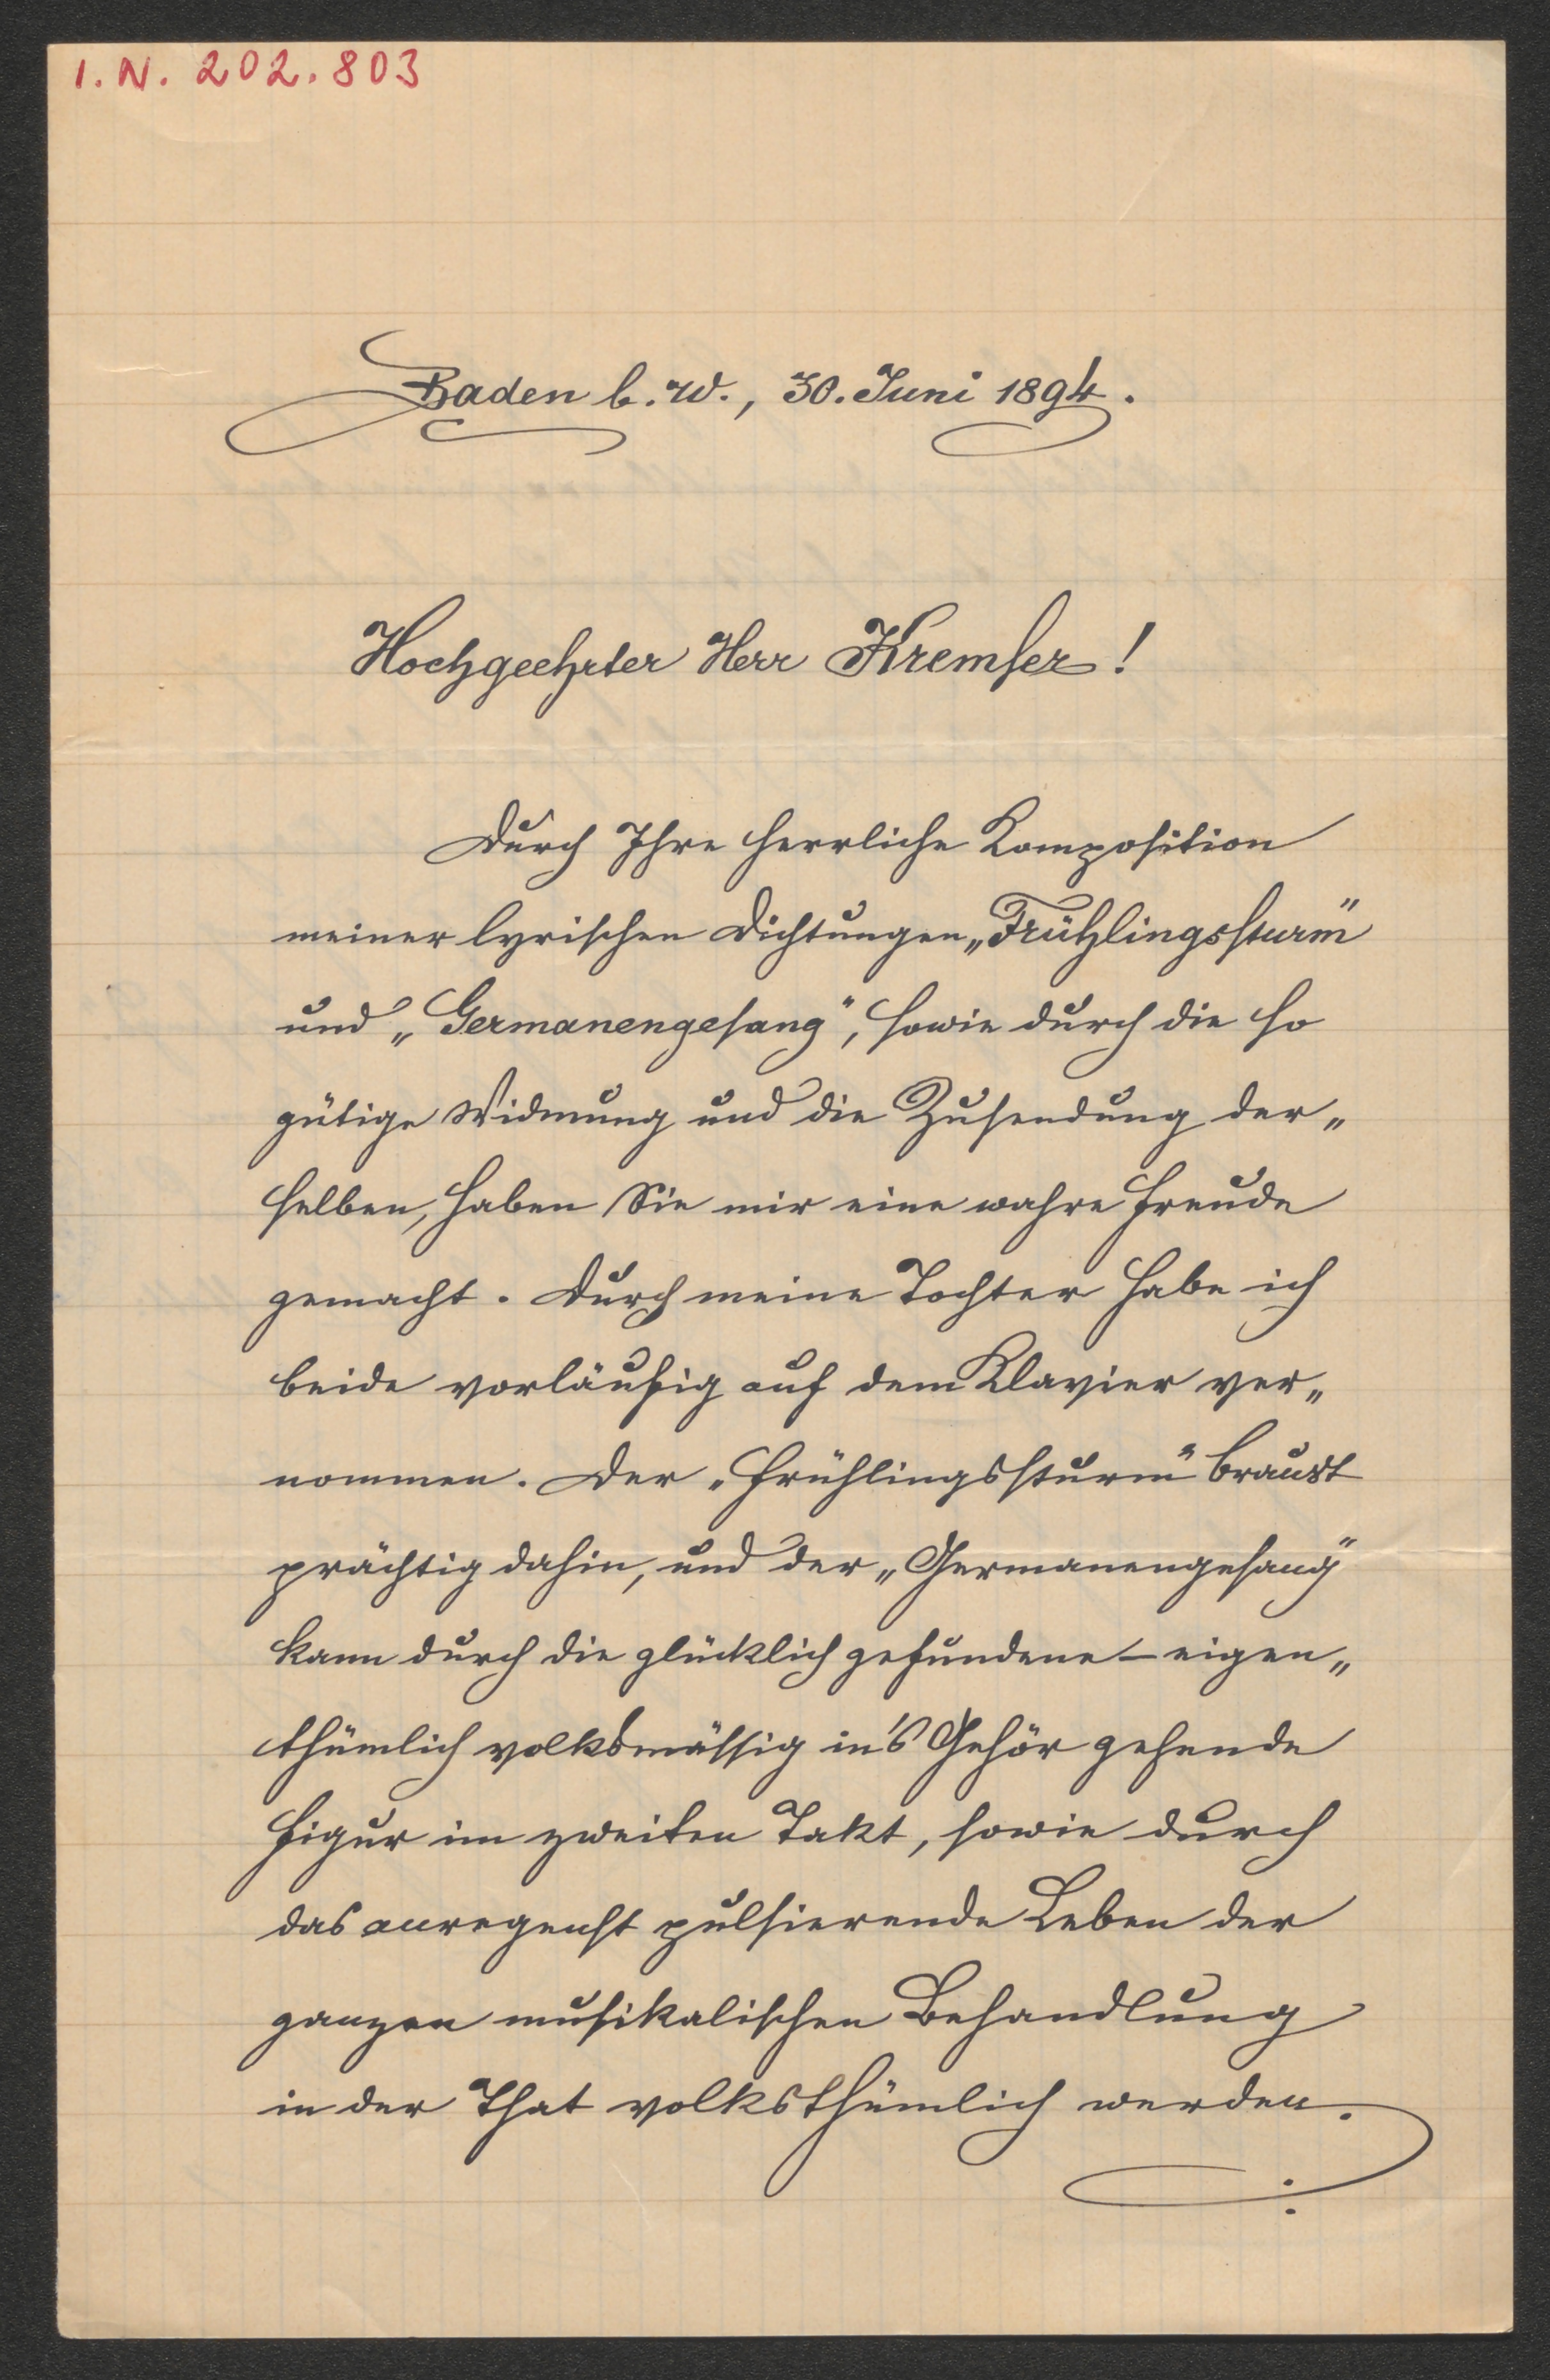 I.N. 202.803
Baden b. W., 30. Juni 1894.
Hochgeehrter Herr Kremser!
Durch Ihre herrliche Komposition
meiner lyrischen Dichtungen „Frühlingssturm"
und „Germanengesang", sowie durch die so
gütige Widmung und die Zusendung der„
selben, haben Sie mir eine wahre Freude
gemacht. Durch meine Tochter habe ich
beide vorläufig auf dem Klavier ver„
nommen. Der „Frühlingssturm" braust
prächtig dahin, und der „Germanengesang"
kann durch die glücklich gefundene – eigen„
thümlich volksmässig in's Gehör gehende
Figur im zweiten Takt, sowie durch
das anregendst pulsierende Leben der
ganzen musikalischen Behandlung
in der That volksthümlich werden.